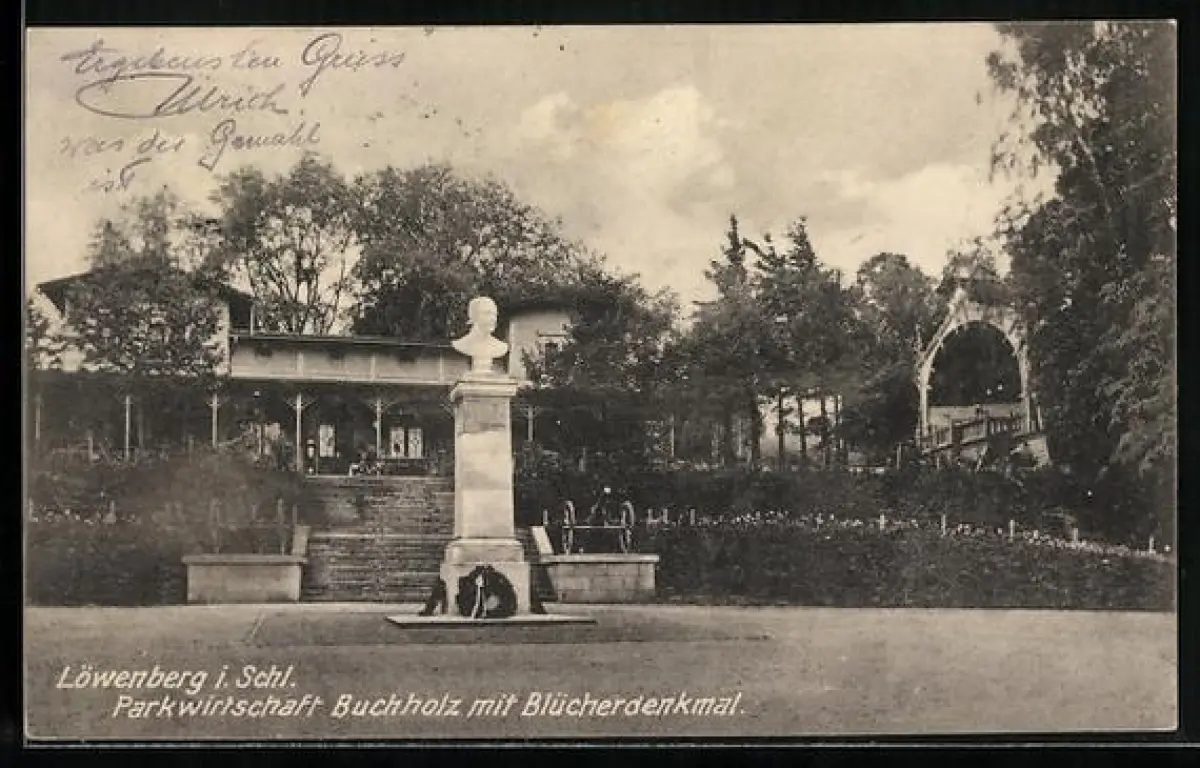 Ergebensten Gruss
Ulrich
was der Gemahl
ist
Löwenberg i. Schl.
Parkwirtschaft Buchholz mit Blücherdenkmal.